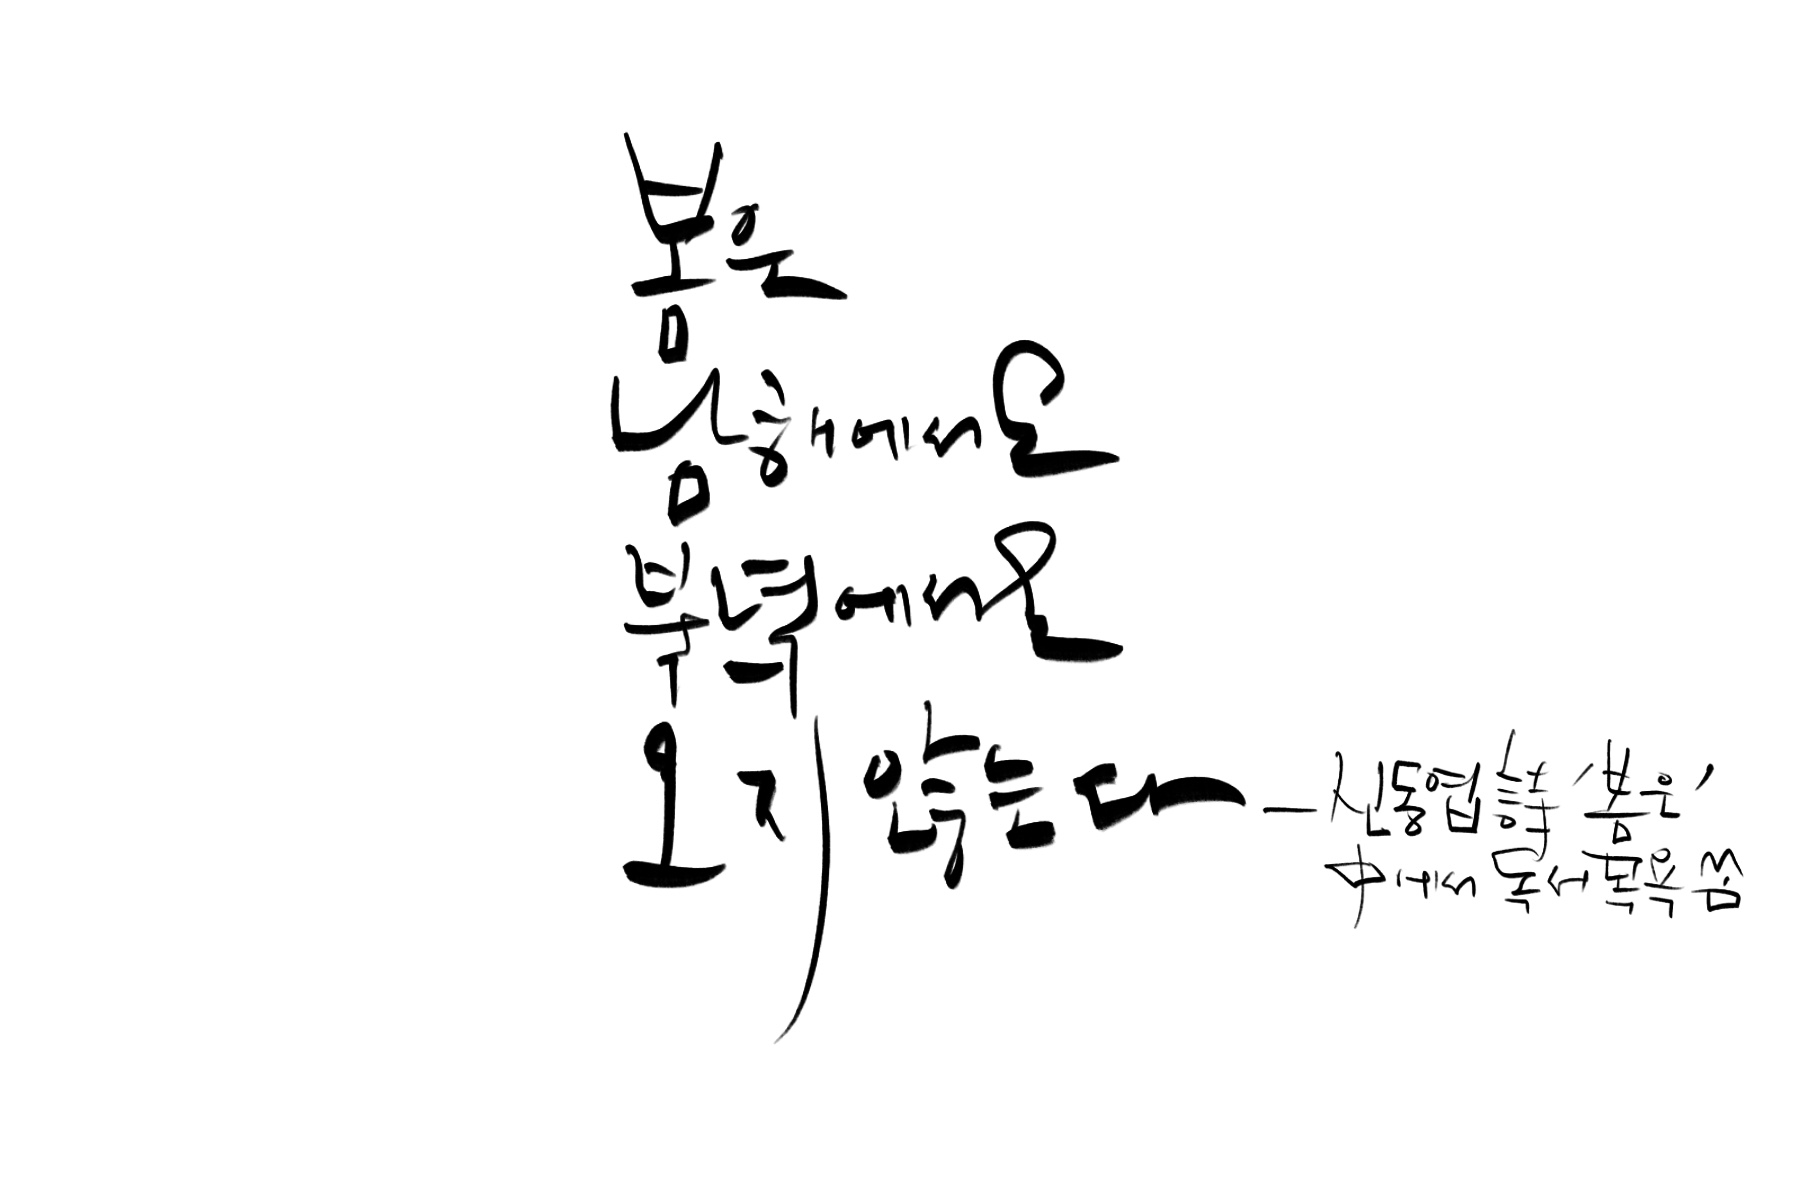 봄은
남해에서도
북녘에서도
오지 않는다
— 신동엽 詩 '봄은'
中에서 독서목욕 씀